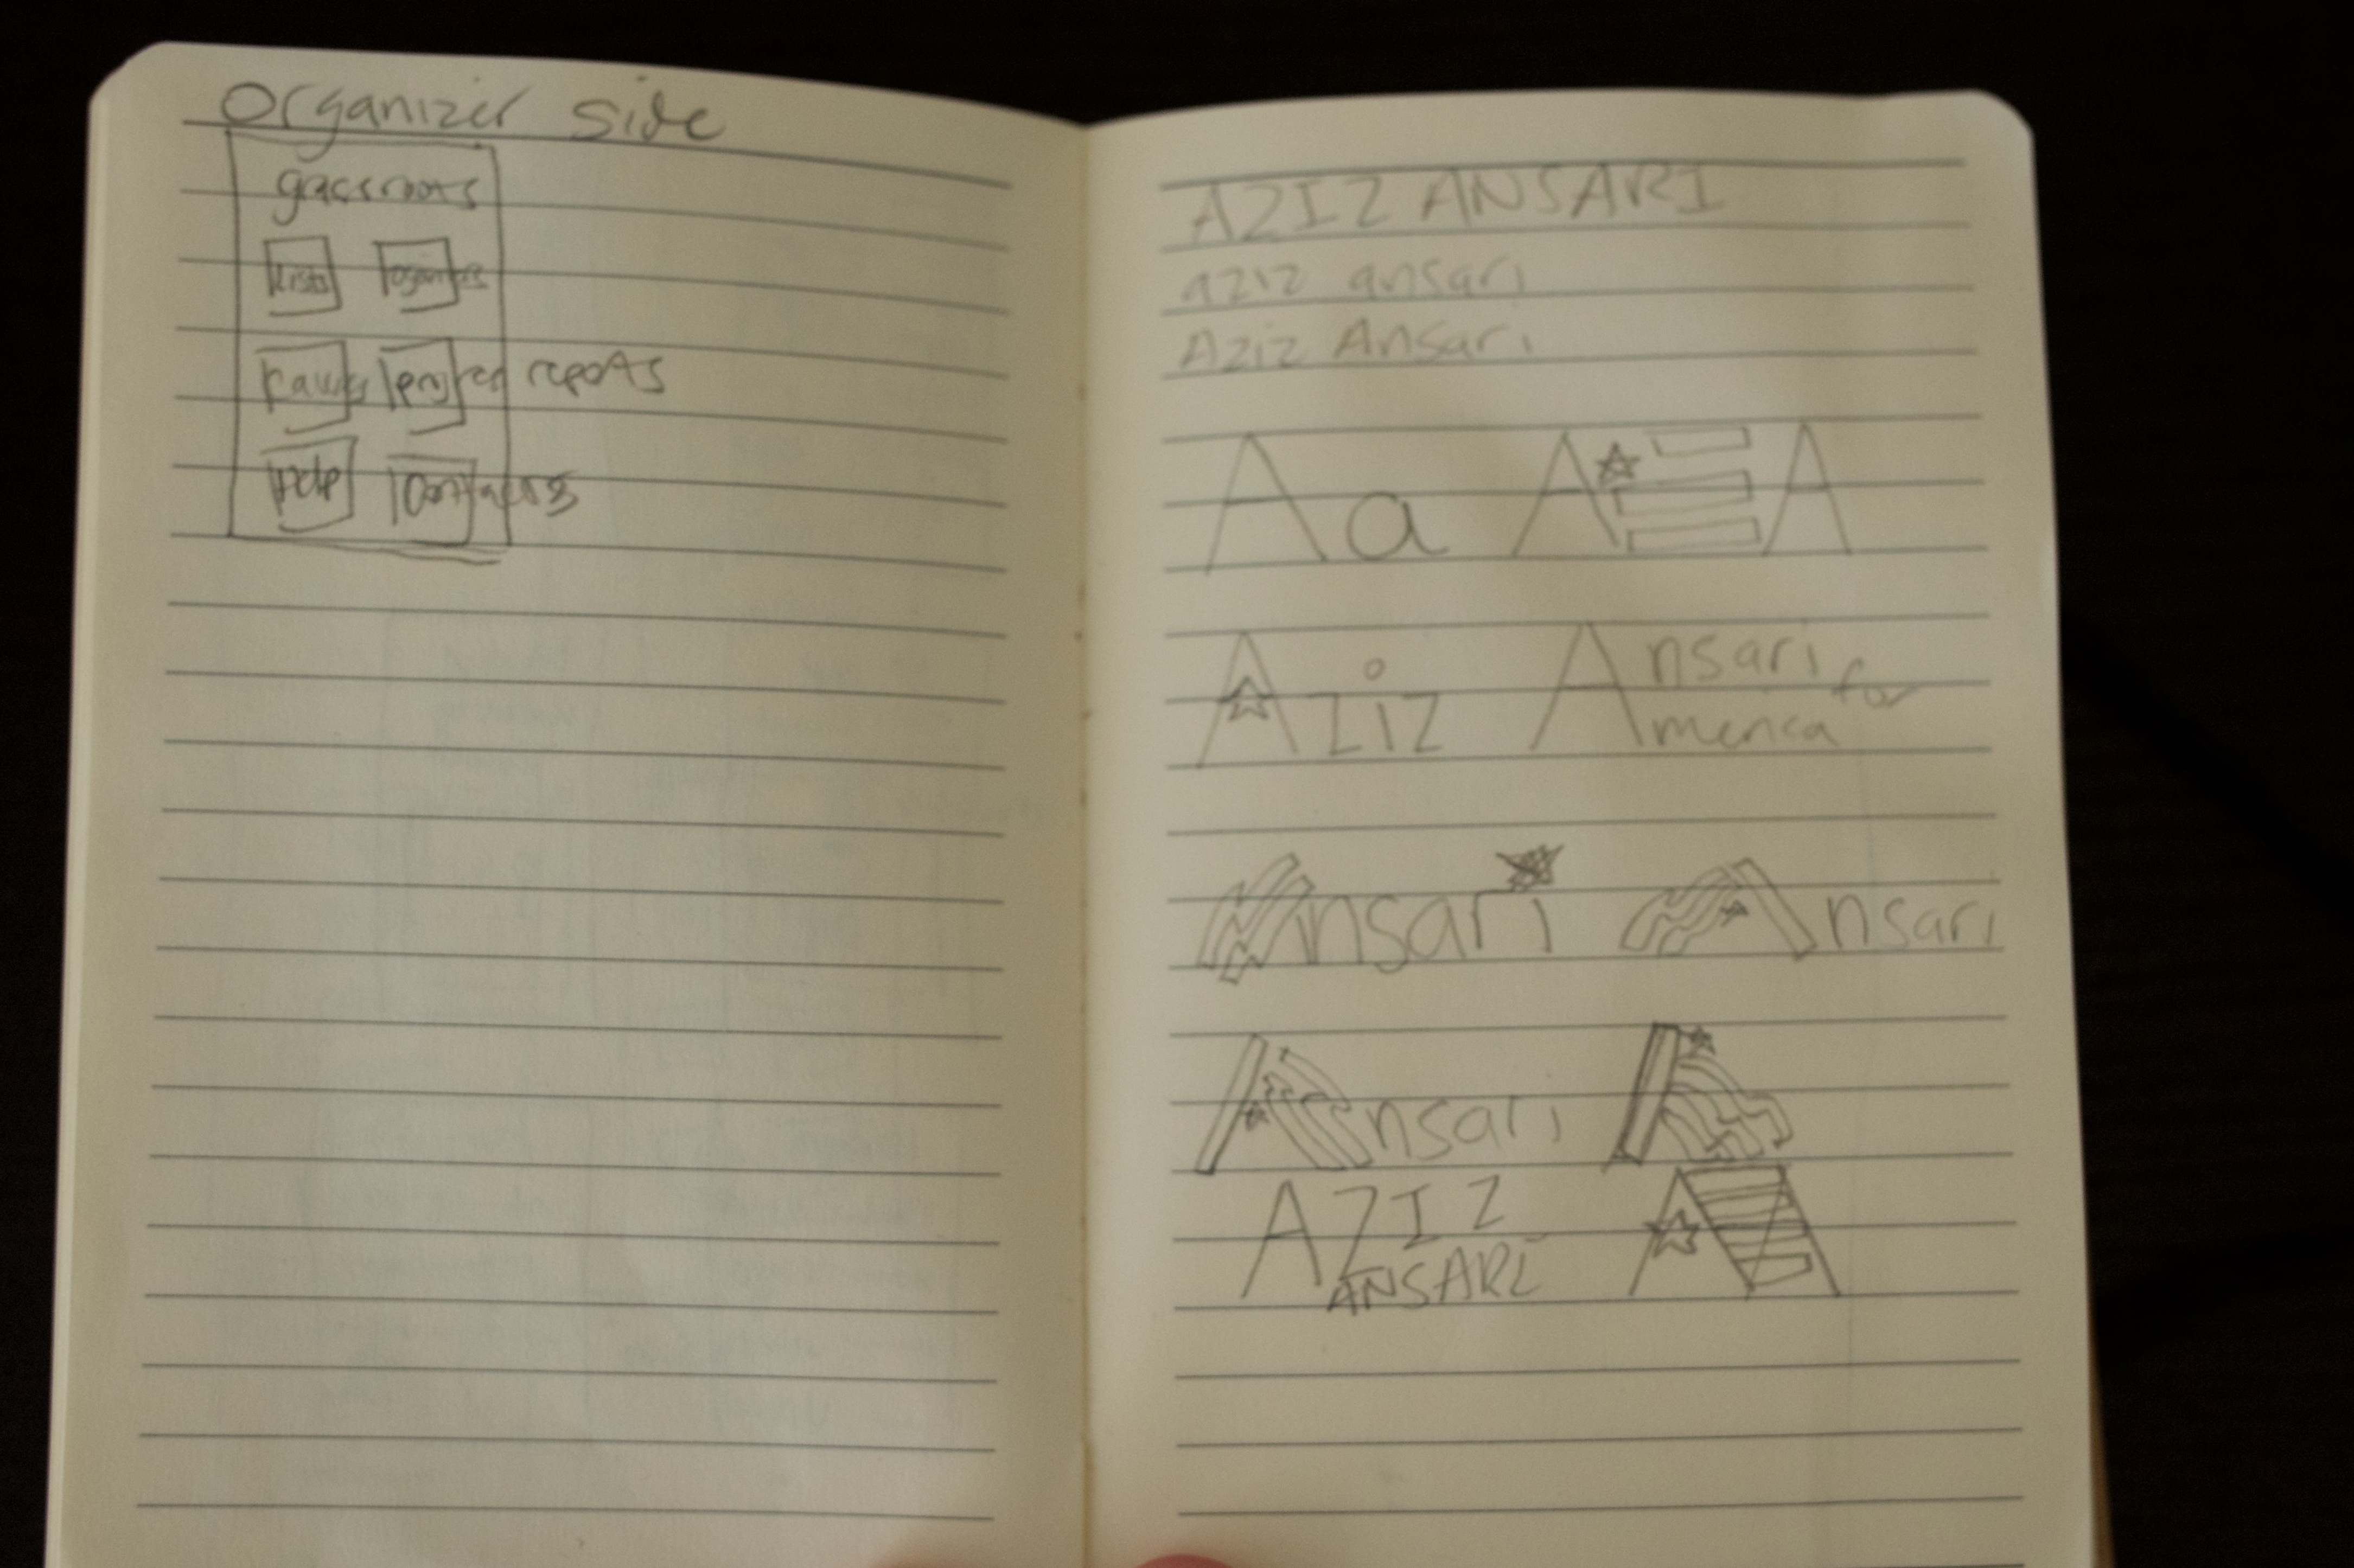 Organizer side
grassroots
Lists organize
reports
Help Contacts
AZIZ ANSARI
aziz ansari
Aziz Ansari
Aa A A
Aziz Ansari for America
Ansari Ansari
Ansari A
AZIZ
ANSARI